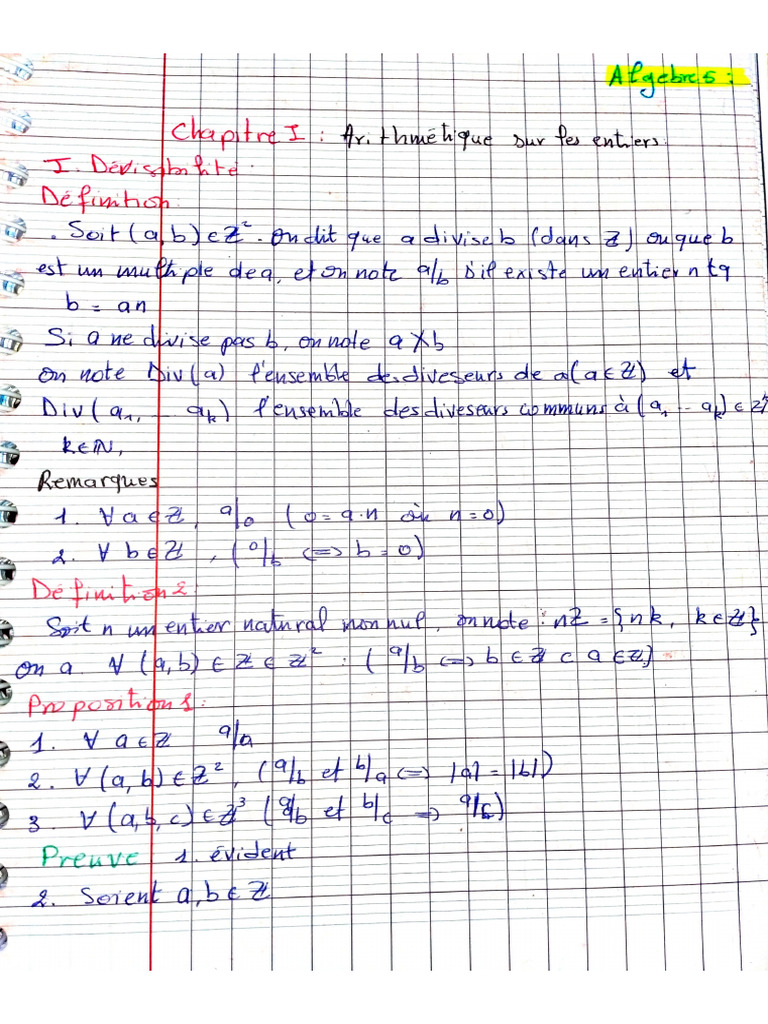 Algebre 5 :
Chapitre I : Arithmétique sur les entiers.
I. Dévisibilité.
Définition
. Soit (a,b) ∈ ℤ². On dit que a divise b (dans ℤ) ou que b
est un multiple de a, et on note a/b s'il existe un entier n tq
b = an
Si a ne divise pas b, on note a ∤ b
on note Div(a) l'ensemble des diveseurs de a (a ∈ ℤ) et
Div(a₁, _ aₖ) l'ensemble des diveseurs communs à (a₁ _ aₖ) ∈ ℤᵏ
k ∈ ℕ,
Remarques
1. ∀ a ∈ ℤ, a/0 (0 = a.n où n = 0)
2. ∀ b ∈ ℤ, (0/b <=> b = 0)
Définition 2
Soit n un entier natural non nul, on note : nℤ = {nk, k ∈ ℤ}
on a ∀ (a,b) ∈ ℤ ∈ ℤ² : (a/b <=> b ∈ ℤ c a ∈ ℤ)
Proposition 1:
1. ∀ a ∈ ℤ a/a
2. ∀ (a,b) ∈ ℤ², (a/b et b/a <=> |a| = |b|)
3. ∀ (a,b,c) ∈ ℤ³ (a/b et b/c => a/c)
Preuve 1. évident
2. Soient a,b ∈ ℤ